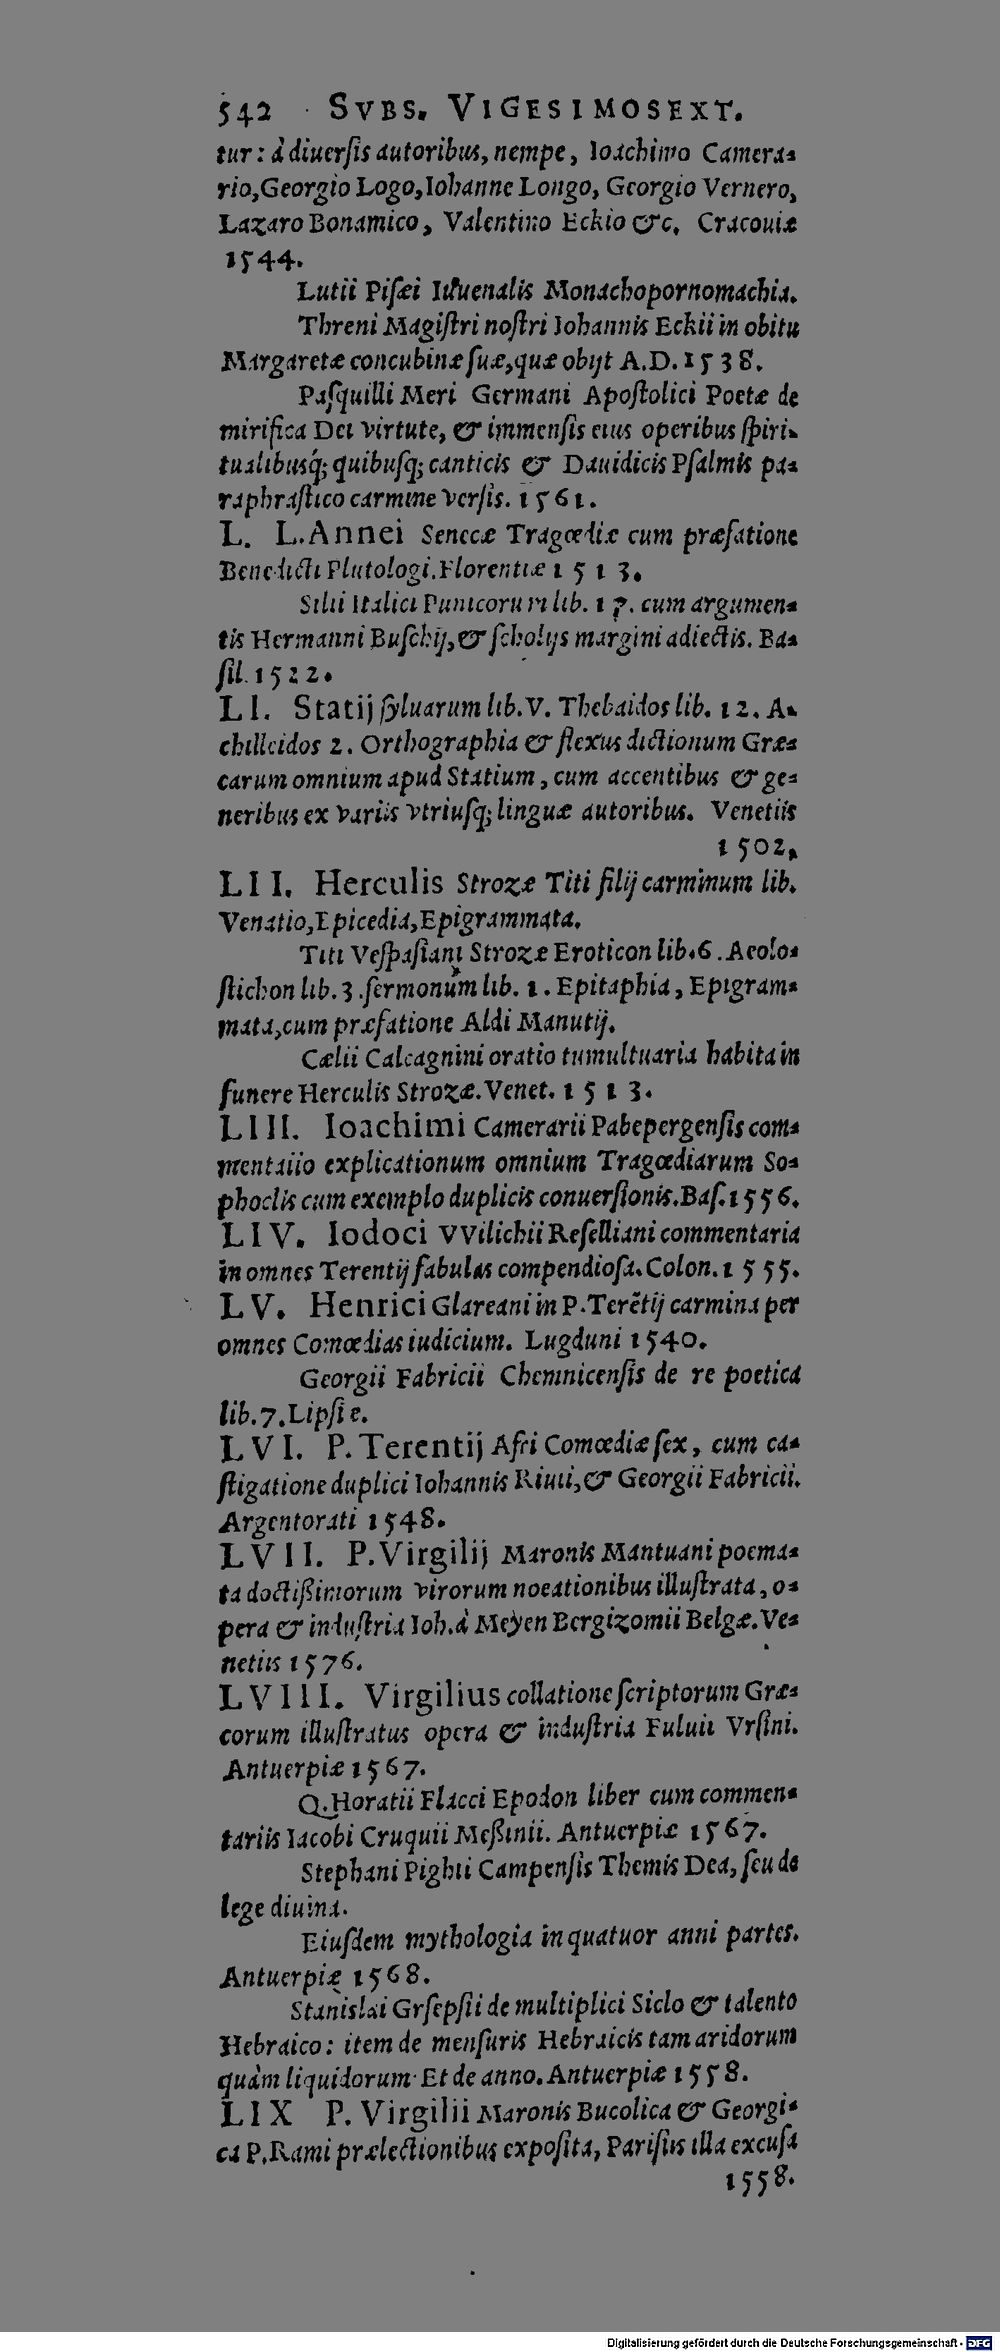 542 SVBS. VIGESIMOSEXT.
tur: à diuerſis autoribus, nempe, Ioachimo Camera⸗
rio, Georgio Logo, Iohanne Longo, Georgio Vernero,
Lazaro Bonamico, Valentino Eckio &c. Cracouiæ
1544.
Lutii Piſæi Iuuenalis Monachopornomachia.
Threni Magiſtri noſtri Iohannis Eckii in obitu
Margaretæ concubinæ ſuæ, quæ obijt A.D. 1538.
Paſquilli Meri Germani Apoſtolici Poetæ de
mirifica Dei virtute, & immenſis eius operibus ſpiri⸗
tualibusq́; quibuſq; canticis & Dauidicis Pſalmis pa⸗
raphraſtico carmine verſis. 1561.
L. L. Annei Senecæ Tragœdiæ cum præfatione
Benedicti Plutologi. Florentiæ 1513.
Silii Italici Punicorum lib. 17. cum argumen⸗
tis Hermanni Buſchij, & ſcholijs margini adiectis. Ba⸗
ſil. 1522.
LI. Statij ſyluarum lib. V. Thebaidos lib. 12. A⸗
chilleidos 2. Orthographia & flexus dictionum Græ⸗
carum omnium apud Statium, cum accentibus & ge⸗
neribus ex variis vtriuſq; linguæ autoribus. Venetiis
1502.
LII. Herculis Strozæ Titi filij carminum lib.
Venatio, Epicedia, Epigrammata.
Titi Veſpaſiani Strozæ Eroticon lib. 6. Aeolo⸗
ſtichon lib. 3. ſermonum lib. 1. Epitaphia, Epigram⸗
mata, cum præfatione Aldi Manutij.
Cælii Calcagnini oratio tumultuaria habita in
funere Herculis Strozæ. Venet. 1513.
LIII. Ioachimi Camerarii Pabepergenſis com⸗
mentatio explicationum omnium Tragœdiarum So⸗
phoclis cum exemplo duplicis conuerſionis. Baſ. 1556.
LIV. Iodoci VVilichii Reſelliani commentaria
in omnes Terentij fabulas compendioſa. Colon. 1555.
LV. Henrici Glareani in P. Terẽtij carmina per
omnes Comœdias iudicium. Lugduni 1540.
Georgii Fabricii Chemnicenſis de re poetica
lib. 7. Lipſiæ.
LVI. P. Terentij Afri Comœdiæ ſex, cum ca⸗
ſtigatione duplici Iohannis Riuii, & Georgii Fabricii.
Argentorati 1548.
LVII. P. Virgilij Maronis Mantuani poema⸗
ta doctißimorum virorum noeationibus illuſtrata, o⸗
pera & induſtria Ioh. à Meyen Bergizomii Belgæ. Ve⸗
netiis 1576.
LVIII. Virgilius collatione ſcriptorum Græ⸗
corum illuſtratus opera & induſtria Fuluii Vrſini.
Antuerpiæ 1567.
Q. Horatii Flacci Epodon liber cum commen⸗
tariis Iacobi Cruquii Meßinii. Antuerpiæ 1567.
Stephani Pighii Campenſis Themis Dea, ſeu de
lege diuina.
Eiuſdem mythologia in quatuor anni partes.
Antuerpiæ 1568.
Stanislai Grſepſii de multiplici Siclo & talento
Hebraico: item de menſuris Hebraicis tam aridorum
quàm liquidorum. Et de anno. Antuerpiæ 1558.
LIX P. Virgilii Maronis Bucolica & Georgi⸗
ca P. Rami prælectionibus expoſita, Pariſiis illa excuſa
1558.
Digitalisierung gefördert durch die Deutsche Forschungsgemeinschaft - DFG